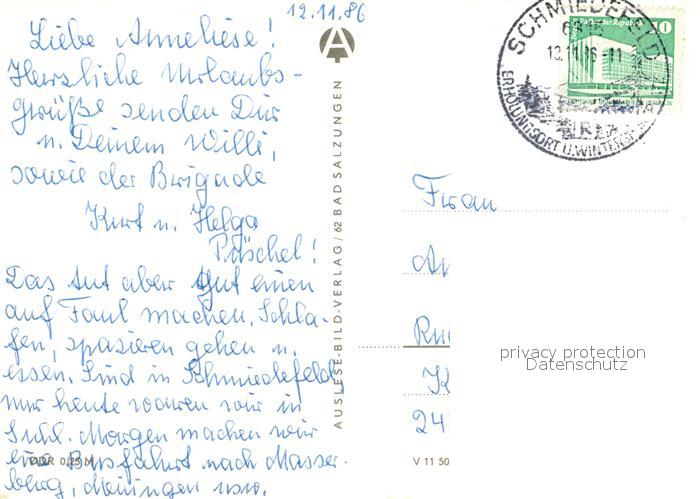 12.11.86
Liebe Anneliese!
Herzliche Urlaubs-
grüße senden Dir
u. Deinem Willi,
sowie der Brigade
Kurt u. Helga
Püschel!
Das tut aber gut einen
auf Faul machen. Schla-
fen, spazieren gehen u.
essen. Sind in Schmiedefeld,
nur heute waren wir in
Suhl. Morgen machen wir
eine Busfahrt nach Masser-
berg, Meiningen usw.
DDR 0,25 M
AUSLESE-BILD-VERLAG / 62 BAD SALZUNGEN
SCHMIEDEFELD
13.11.86-11
ERHOLUNGSORT U. WINTERSP
Palast der Republik
Frau
An
K
24
V 11 50
privacy protection
Datenschutz